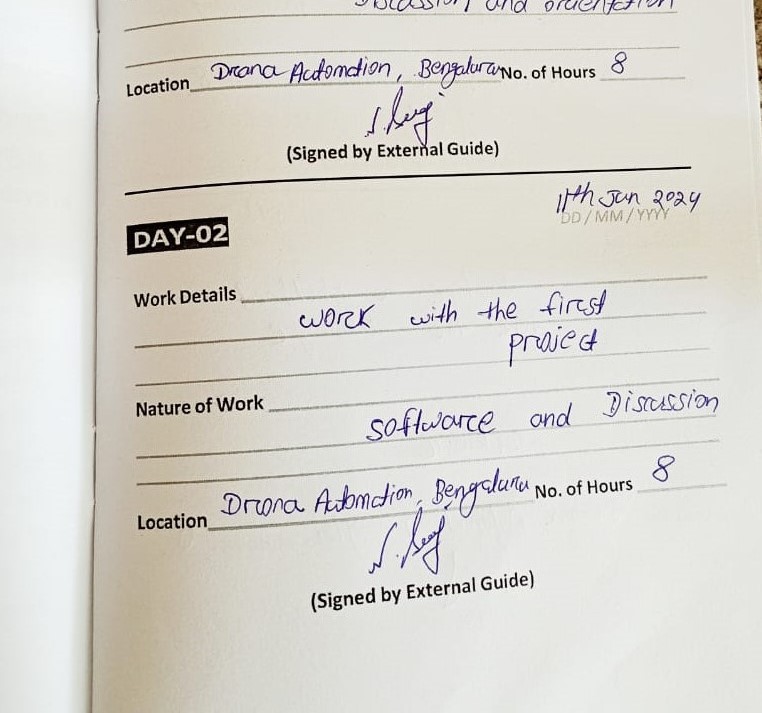 and orientation
Location Drona Automation, Bengaluru No. of Hours 8
(Signed by External Guide)
11th Jan 2024
DD/MM/YYYY
DAY-02
Work Details
work with the first
project
Nature of Work
software and Discussion
Location Drona Automation, Bengaluru No. of Hours 8
(Signed by External Guide)